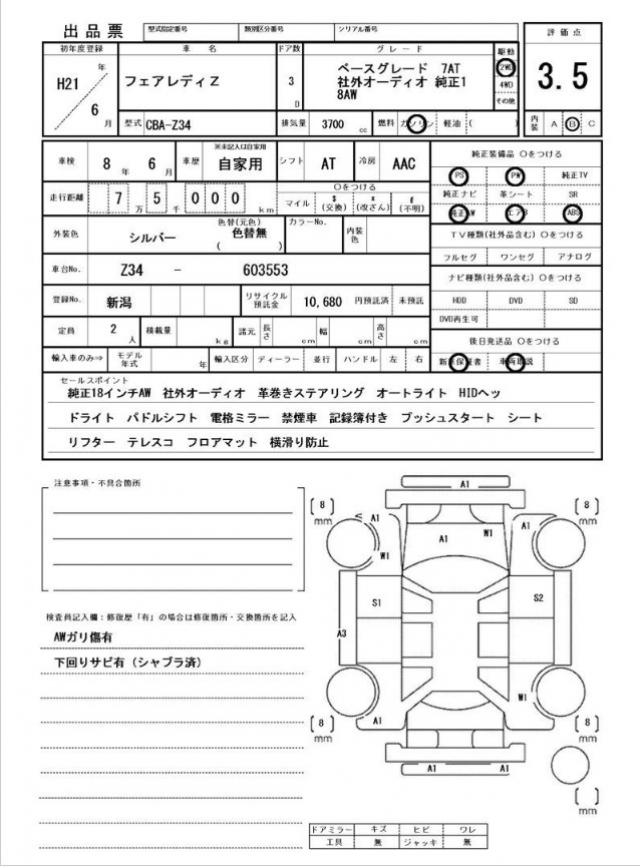 出品票 型式指定番号 類別区分番号 シリアル番号
初年度登録 車名 ドア数 グレード 駆動 評価点
H21 年 6 月
フェアレディZ
3 D
ベースグレード 7AT
社外オーディオ 純正1
8AW
2WD
4WD
その他
3.5
型式 CBA-Z34 排気量 3700 cc 燃料 ガソリン 軽油 ( ) 内装 A B C
車検 8 年 6 月 車歴 ※未記入は自家用 自家用 シフト AT 冷房 AAC
純正装備品 ○をつける
PS PW 純正TV
純正ナビ 革シート SR
純正AW エアB ABS
走行距離 7 万 5 千 000 km
○をつける
マイル $(交換) x(改ざん) #(不明)
外装色 シルバー 色替(元色) 色替無 ( ) カラーNo. 内装色
TV種類(社外品含む) ○をつける
フルセグ ワンセグ アナログ
車台No. Z34 - 603553
ナビ種類(社外品含む) ○をつける
HDD DVD SD
DVD再生可
登録No. 新潟 リサイクル預託金 10,680 円預託済 未預託
定員 2 人 積載量 kg 諸元 長さ cm 幅 cm 高さ cm
後日発送品 ○をつける
新車保証書 車両取説
輸入車のみ⇒ モデル年式 年 輸入区分 ディーラー 並行 ハンドル 左 右
セールスポイント
純正18インチAW 社外オーディオ 革巻きステアリング オートライト HIDヘッ
ドライト パドルシフト 電格ミラー 禁煙車 記録簿付き プッシュスタート シート
リフター テレスコ フロアマット 横滑り防止
注意事項・不具合箇所
検査員記入欄：修復歴「有」の場合は修復箇所・交換箇所を記入
AWガリ傷有
下回りサビ有（シャブラ済）
A1
[8] mm
[8] mm
A1 A1 W1 A1
W1
S1 S2
A3
W1
[8] mm
[8] mm
A1 A1
A1 A1
[ ] mm
ドアミラー キズ ヒビ ワレ
工具 無 ジャッキ 無